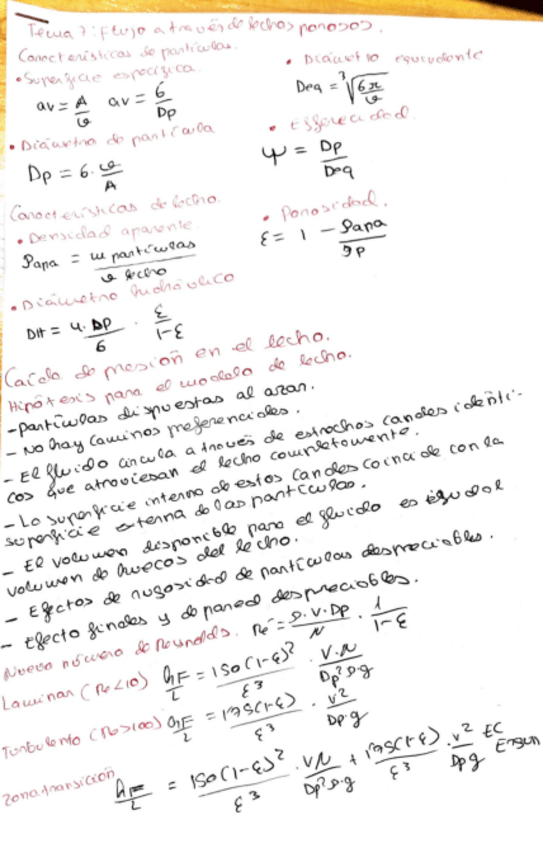 Tema 7: Flujo a través de lechos porosos.
Características de partículas.
• Superficie específica
av = A/v   av = 6/Dp
• Diámetro equivalente
Deq = ³√(6v/π)
• Diámetro de partícula
Dp = 6 · v/A
• Esfericidad
Ψ = Dp/Deq
Características de lecho.
• Densidad aparente
ρapa = m partículas / v lecho
• Porosidad.
ε = 1 - ρapa/ρp
• Diámetro hidráulico
DH = 4 · Dp/6 · ε/1-ε
Caída de presión en el lecho.
Hipótesis para el modelo de lecho.
- Partículas dispuestas al azar.
- No hay caminos preferenciales.
- El fluido circula a través de estrechos canales idénti-
cos que atraviesan el lecho completamente.
- La superficie interna de estos canales coincide con la
superficie externa de las partículas.
- El volumen disponible para el fluido es igual al
volumen de huecos del lecho.
- Efectos de rugosidad de partículas despreciables.
- Efecto finales y de pared despreciables.
Nuevo número de Reynolds. Re' = ρ·v·Dp/μ · 1/1-ε
Laminar (Re<10) hF/L = 150(1-ε)²/ε³ · v·μ/Dp²ρ·g
Turbulento (Re>100) hF/L = 1,75(1-ε)/ε³ · v²/Dp·g
Zona transición hF/L = 150(1-ε)²/ε³ · vμ/Dp²ρ·g + 1,75(1-ε)/ε³ · v²/Dp g EC Ergun